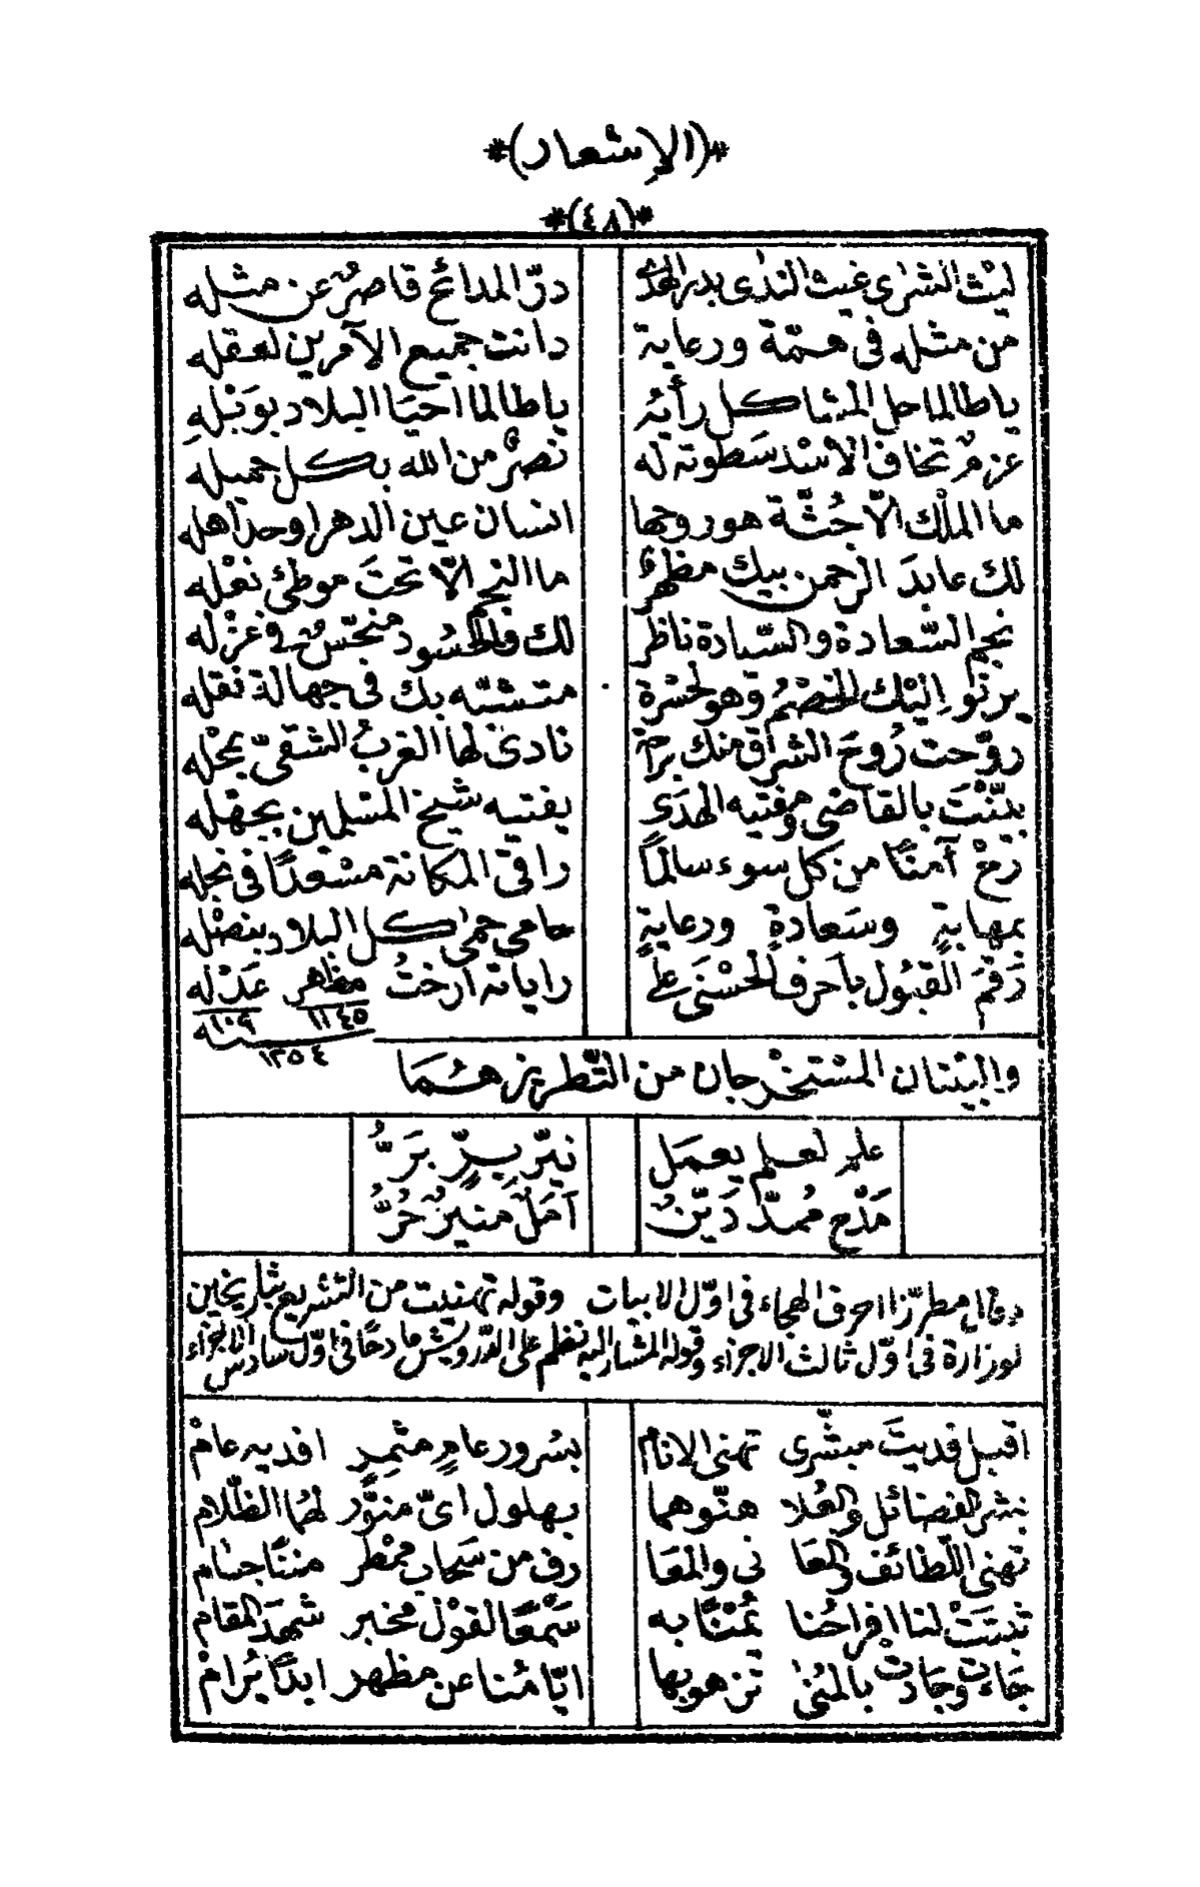 *(الإشعار)*
*(٤٨)*
ليْث الشرٰى غيث الندٰى بدر الهدى درّ المدائح قاصرٌ عن مثله
من مثله فى همّة ورعاية دانت جميع الآمرين لعقله
ياطالما حل المشاكل رأيهُ ياطالما احيَا البلاد بوَبْلهِ
عزمٌ تخاف الاسْد سَطوته له نصرٌ من الله بكل جميله
ما الملْك الّا جُثّة هو روحها انسان عين الدهر اوحد اهله
لك عابدَ الرحمن بيك مظهرٌ ما النجم الّا تحتَ موطئ نعْله
نجم السّعادة والسّيادة ناظر لك والحَسُود منحّسٌ فى غزْله
يرنُو اِليْك الخصْمُ وهو لحسْرة متشبّه بك فى جهالة نقله
روّحت رُوحَ الشرق منك براحة نادىٰ لها الغربُ الشقىّ بجهْله
بيّنْتَ بالقاضى ومفتيه الهدَى يفتيه شيخ المسْلمين بجهْله
زحْ آمنًا من كل سوء سالمًا راقى المكانة مسْعدًا فى نجله
بمهابةٍ وسَعادةٍ ورعايةٍ حامى حمٰى كل البلاد بنصْله
رَقمَ القبُول باَحرف الحسْنَى على راياته ارختُ مظاهر عَدْله
١١٤٥ ١٠٩
سنه ١٢٥٤
والبيْتان المسْتخرجان من التّطريز هُمَا
علم لعلم يعمَل نيّر بِرٍّ بَرَّ
مَدْح مُمدّ دَيّنٌ آمَلٌ منيرٌ حُرَّ
وقال مطرّزا احرف الهجاء فى اوّل الابيات وقوله تهنيت من التشريع بتاريخين
لوزارة فى اوّل ثالث الاجزاء وقوله المشار اليه نظم على الدرويش مادحًا فى اوّل سادس الاجزاء
اقبل فديتَ مبشّرى تهنى الانام بسُرور عامٍ مثمِرٍ افديه عامْ
بشر الفضائل والعُلا هنّوهما بهلول اىّ منوَّر لهُما الظّلام
تهنى اللّطائف والمعَا نى والمعَا رفى من سَحاب ممْطر مننًا جسَام
ثبتَتْ لنا افراحُنا ثمْنًا به سَمْعًا لقوْل مخبر شهدَ المقام
جَاءت وجَادت بالمُنىٰ تزهو بها ايّامُنا عن مظهر ابدًا يُرامْ